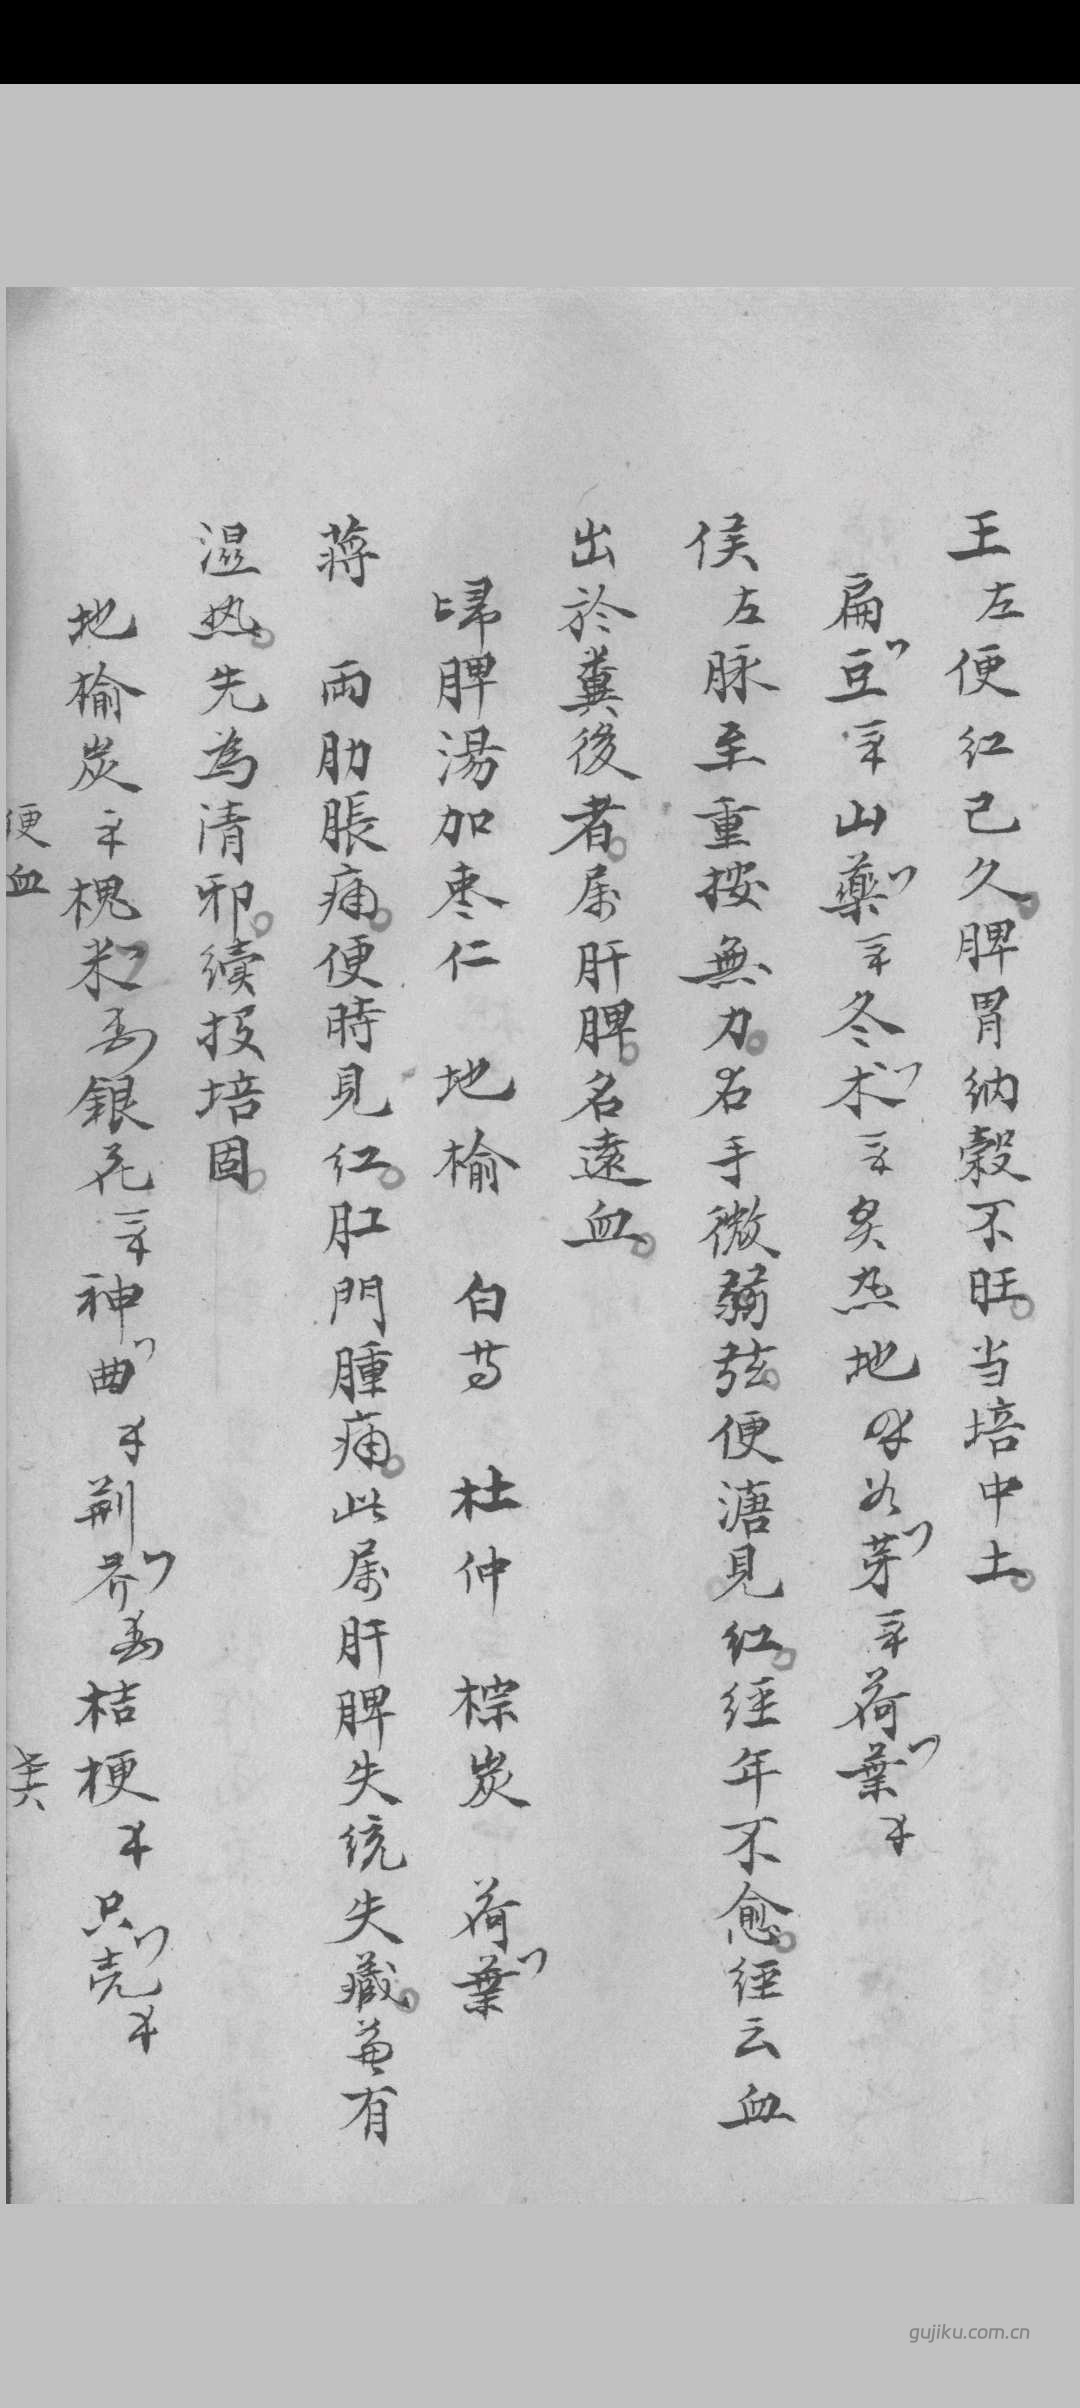 王左便红已久脾胃纳穀不旺当培中土
扁豆山藥冬术炙熟地芽荷葉
侯左脉至重按無力右手微弱弦便溏見红经年不愈经云血
出於糞後者属肝脾名遠血
归脾湯加枣仁 地榆 白芍 杜仲 棕炭 荷葉
蒋 両肋脹痛便時見红肛門腫痛此属肝脾失统失藏兼有
湿热先為清邪續投培固
地榆炭槐米銀花神曲荆芥桔梗只壳
便血
gujiku.com.cn